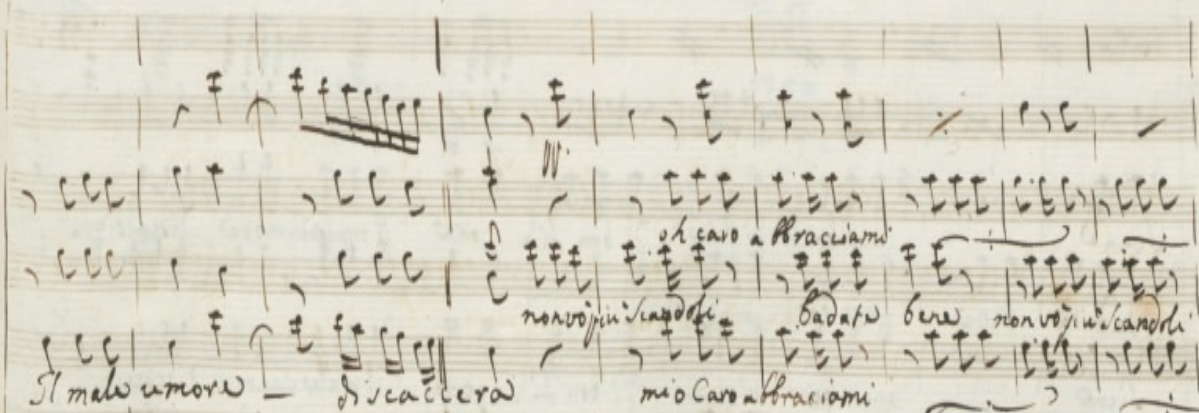 oh caro abbracciami
non vo più scandoli badate bene non vo più scandoli
Il male umore discaccera mio Caro abbraciami